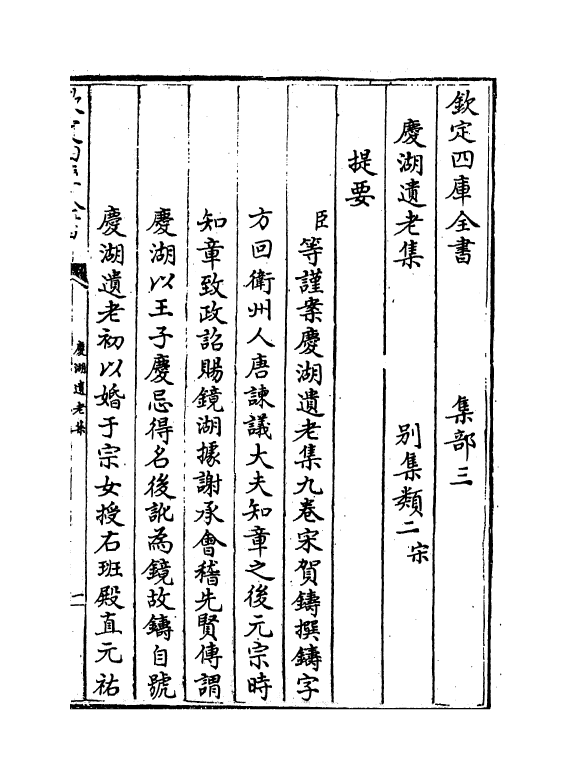 欽定四庫全書　　集部三
慶湖遺老集　　別集類二宋
提要
臣等謹案慶湖遺老集九卷宋賀鑄撰鑄字
方回衛州人唐諫議大夫知章之後元宗時
知章致政詔賜鏡湖據謝承會稽先賢傳謂
慶湖以王子慶忌得名後訛為鏡故鑄自號
慶湖遺老初以婚于宗女授右班殿直元祐
慶湖遺老集